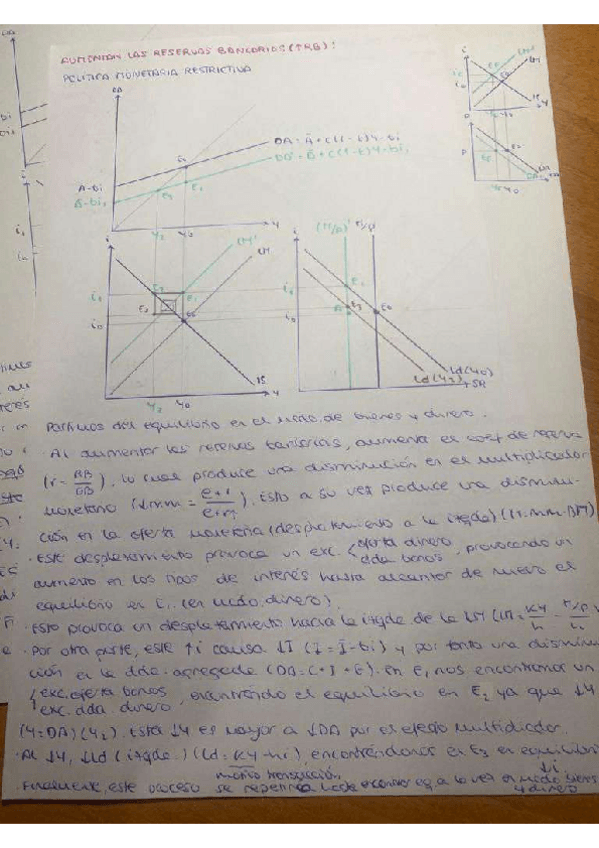 AUMENTAN LAS RESERVAS BANCARIAS (↑RB):
POLÍTICA MONETARIA RESTRICTIVA
DA
DA = Ā + c(1-t)Y - bi
DA' = Ā + c(1-t)Y - bi₁
Ā-bi
Ā-bi₁
E₀ E₁ E₂
Y₂ Y₀ Y
i
LM'
LM
i₁
i₀
E₁ E₀
IS
Y₂ Y₀ Y
i
(M/P)' M/P
i₁
i₀
E₁ E₃ E₀
Ld(Y₀)
Ld(Y₂)
SR
i LM' LM IS Y
P
Partimos del equilibrio en el mcdo. de bienes y dinero.
· Al aumentar las reservas bancarias, aumenta el coef de reserva
(r = RB/DB), lo cual produce una disminución en el multiplicador
monetario (↓mm = e+1/e+r). Esto a su vez produce una disminu-
ción en la oferta monetaria (desplazamiento a la izqda) (M = mm · BM)
· Este desplazamiento provoca un exc. { oferta dinero / dda bonos , provocando un
aumento en los tipos de interés hasta alcanzar de nuevo el
equilibrio en E₁ (en mcdo. dinero).
· Esto provoca un desplazamiento hacia la izqda de la LM
· Por otra parte, este ↑i causa ↓I (I = Ī - bi) y por tanto una disminu-
ción en la dda. agregada (DA = C + I + G). En E₁ nos encontramos un
{ exc. oferta bonos / exc. dda dinero , encontrando el equilibrio en E₂ ya que ↓Y
(Y = DA) (Y₂). Esta ↓Y es mayor a ↓DA por el efecto multiplicador.
· Al ↓Y, ↓Ld (izqda.) (Ld = KY - hi), encontrándonos en E₃ en equilibrio
motivo transacción ↓i
· Finalmente, este proceso se repetirá hasta encontrar eq. a la vez en mcdo bienes
y dinero